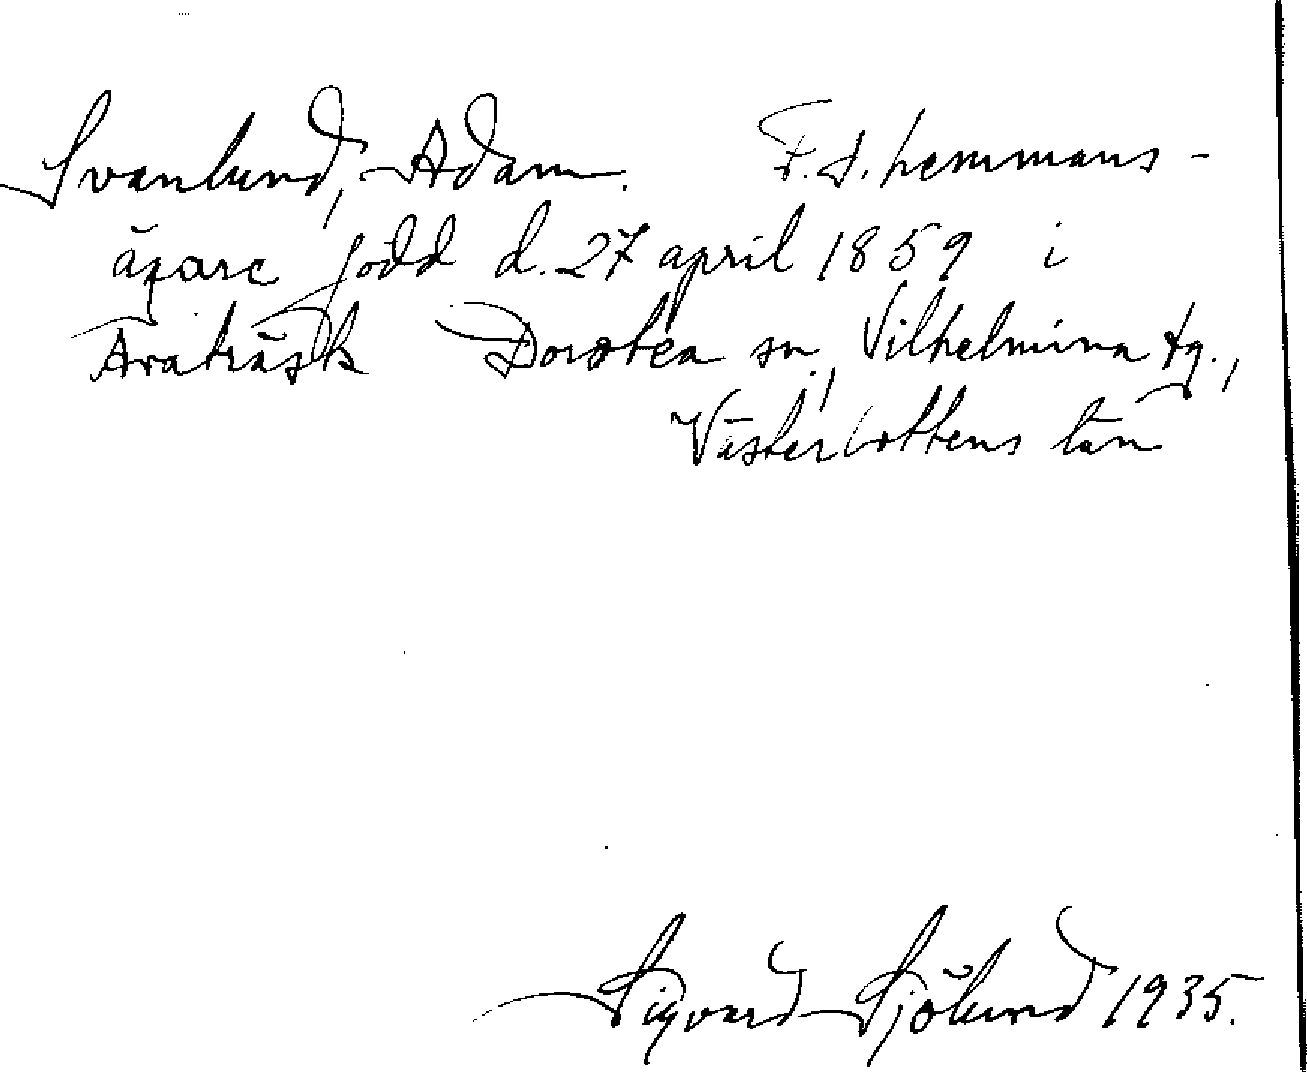 Svanlund, Adam. F.d. hemmans-
ägare född d. 27 april 1859 i
Avaträsk Dorotea sn, Vilhelmina tg.,
Västerbottens län
Sigvard Sjölund 1935.